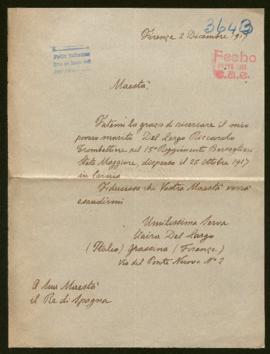 3643
Firenze 2 Dicembre 1917
Fecho
C.a.e.
Maestà
Fatemi la grazia di ricercare il mio
povero marito Del Largo Riccardo
Trombettiere nel 15° Reggimento Bersaglieri
Stato Maggiore, disperso il 25 ottobre 1917
in Carnia
Fiduciosa che Vostra Maestà vorrà
esaudirmi
Umilissima Serva
Del Largo
(Italia) Grassina (Firenze)
Via del Ponte Nuovo N° 2
A Sua Maestà
il Re di Spagna